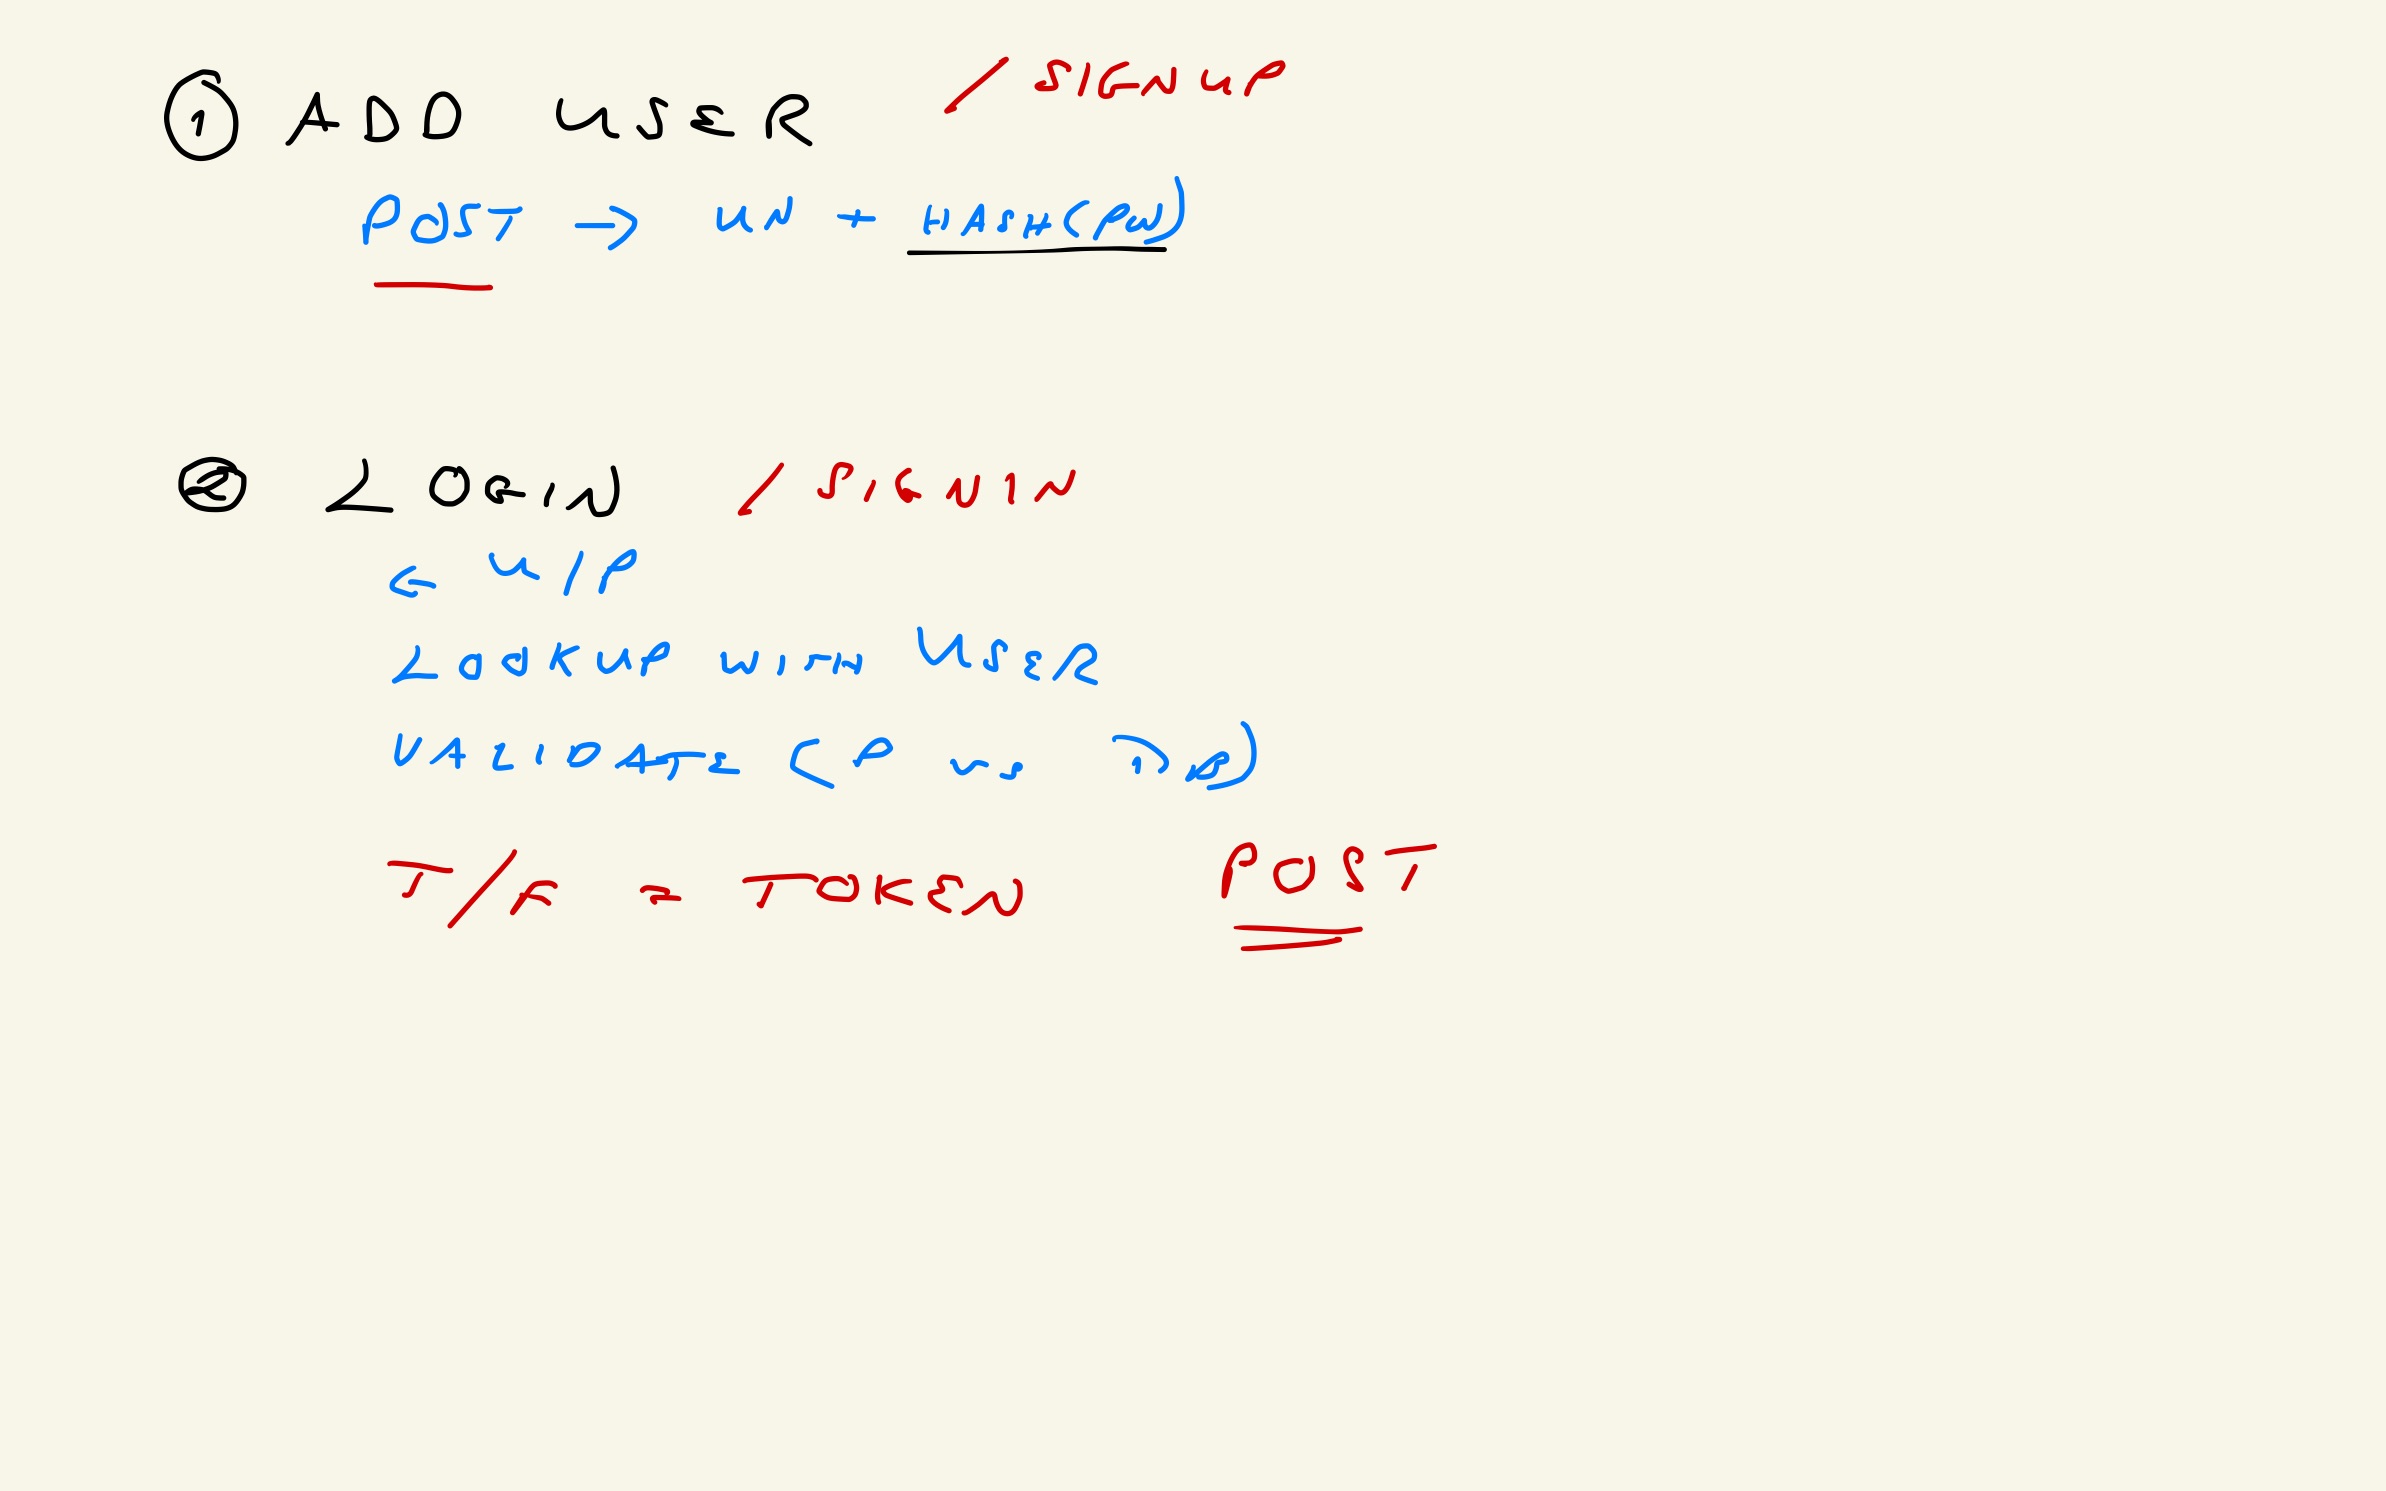 ① ADD USER / SIGNUP
POST → UN + HASH(PW)
② LOGIN / SIGNIN
← U/P
LOOKUP WITH USER
VALIDATE (P vs DB)
T/F = TOKEN POST